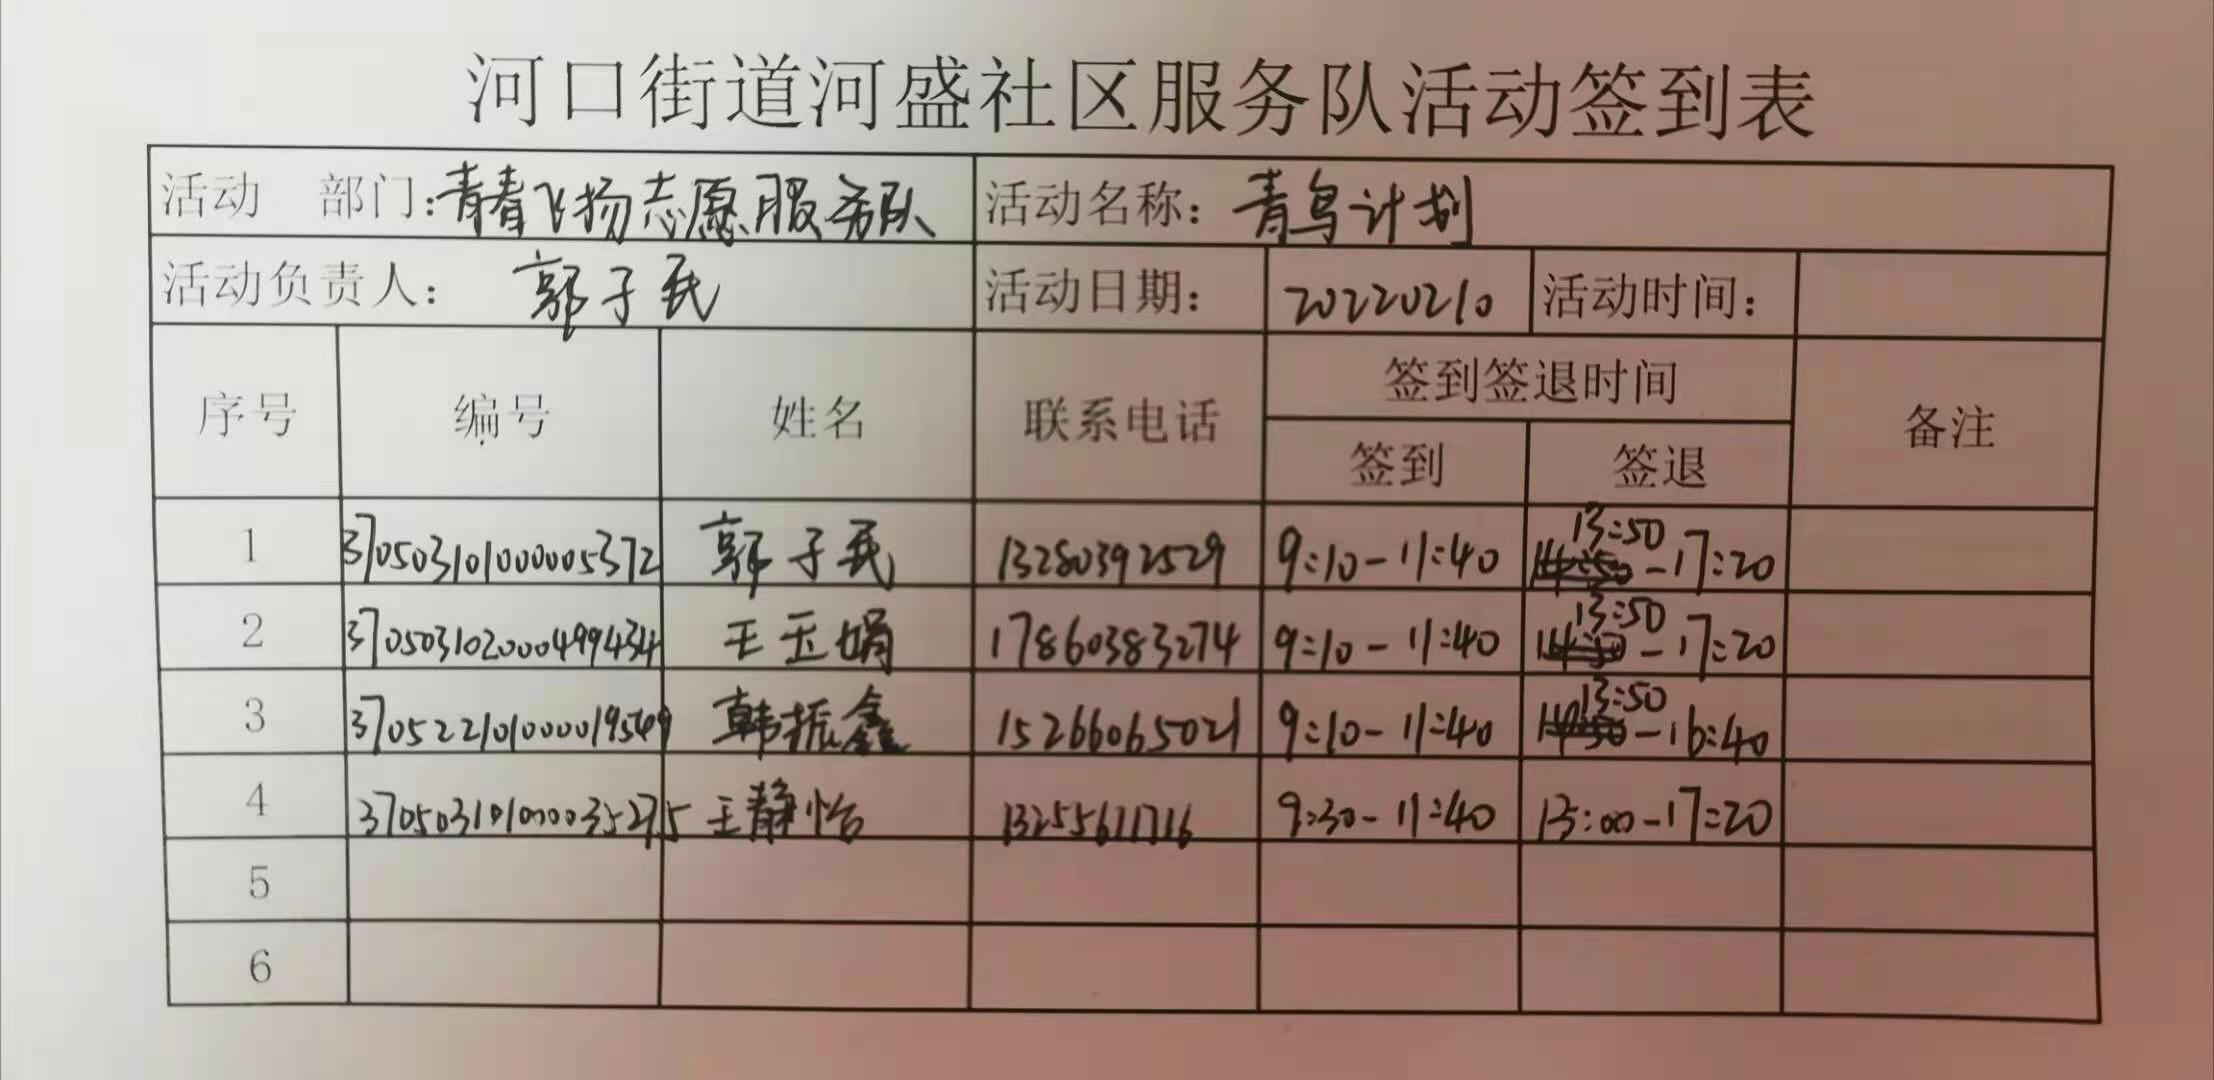 河口街道河盛社区服务队活动签到表
活动 部门：青春飞扬志愿服务队 活动名称：青鸟计划
活动负责人： 郭子民 活动日期： 20220210 活动时间：
序号 编号 姓名 联系电话 签到签退时间 备注
签到 签退
1 370503101000005372 郭子民 13280392529 9:10-11:40 13:50-17:20
2 370503102000499434 王玉娟 17860383274 9:10-11:40 13:50-17:20
3 韩振鑫 15266065021 9:10-11:40 13:50-16:40
4 王静怡 13255611716 9:30-11:40 13:00-17:20
5
6